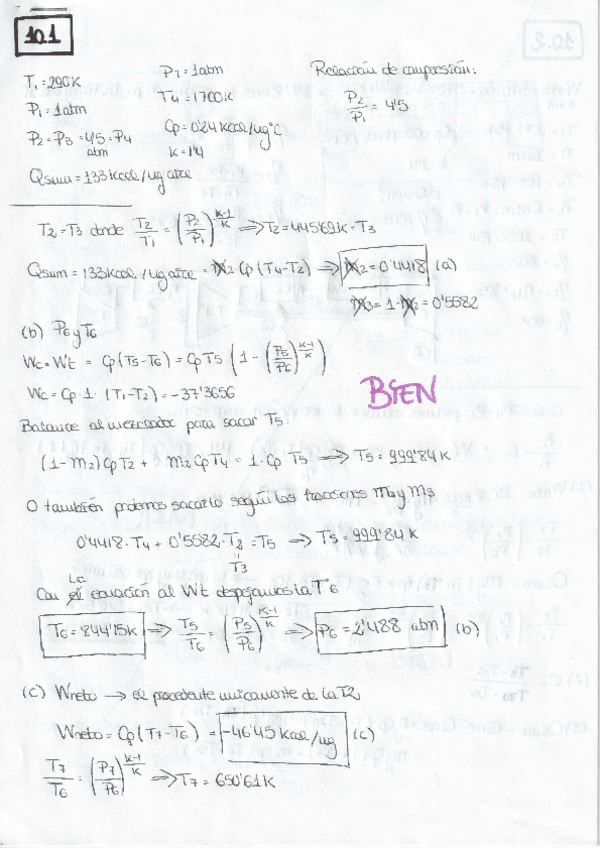 10.1
T₁ = 290K
P₇ = 1atm
Relación de compresión:
P₁ = 1atm
T₄ = 1700K
P₂/P₁ = 4'5
P₂ = P₃ = 4'5 = P₄
atm
Cp = 0'24 Kcal/kg°C
K = 1'4
Qsum = 133 Kcal/kg aire
T₂ = T₃ donde T₂/T₁ = (P₂/P₁)^(K-1/K) ⇒ T₂ = 445'69K = T₃
Qsum = 133 Kcal/kg aire = m₂ Cp (T₄-T₂) ⇒ m₂ = 0'4418 (a)
m₃ = 1 - m₂ = 0'5582
(b) P₆ y T₆
Wc = Wt = Cp (T₅-T₆) = Cp T₅ (1 - (P₅/P₆)^(K-1/K))
Wc = Cp · 1 · (T₁-T₂) = -37'3656
BIEN
Balance al mezclador para sacar T₅:
(1-m₂) Cp T₂ + m₂ Cp T₄ = 1 · Cp · T₅ ⇒ T₅ = 999'84 K
O también podemos sacarlo según las fracciones m₂ y m₃
0'4418 · T₄ + 0'5582 · T₂ = T₅ ⇒ T₅ = 999'84 K
=
T₃
La
Con ecuación al Wt despejamos la T₆
T₆ = 844'15K ⇒ T₅/T₆ = (P₅/P₆)^(K-1/K) ⇒ P₆ = 2'488 atm (b)
(c) Wneto → el procedente unicamente de la T2,
Wneto = Cp (T₇-T₆) = -46'45 Kcal/kg (c)
T₇/T₆ = (P₇/P₆)^(K-1/K) ⇒ T₇ = 650'61K